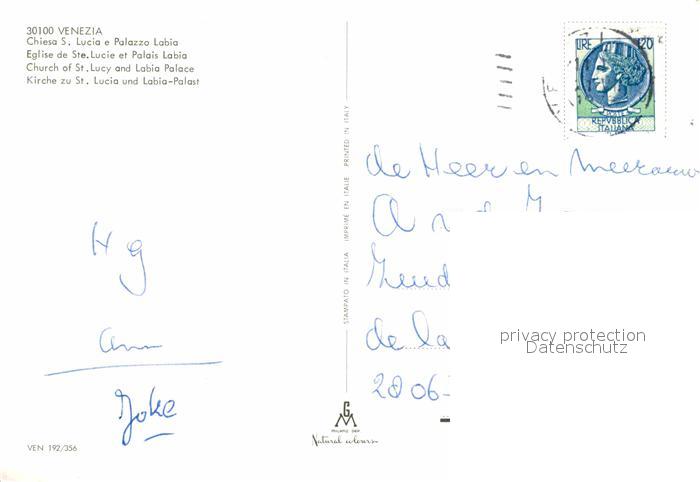 30100 VENEZIA
Chiesa S. Lucia e Palazzo Labia
Eglise de Ste. Lucie et Palais Labia
Church of St. Lucy and Labia Palace
Kirche zu St. Lucia und Labia-Palast
LIRE 120
POSTE
REPVBBLICA
ITALIANA
STAMPATO IN ITALIA IMPRIMÉ EN ITALIE PRINTED IN ITALY
de Heer en
de la
2806-
privacy protection
Datenschutz
Joke
GM
Natural colours
VEN 192/356